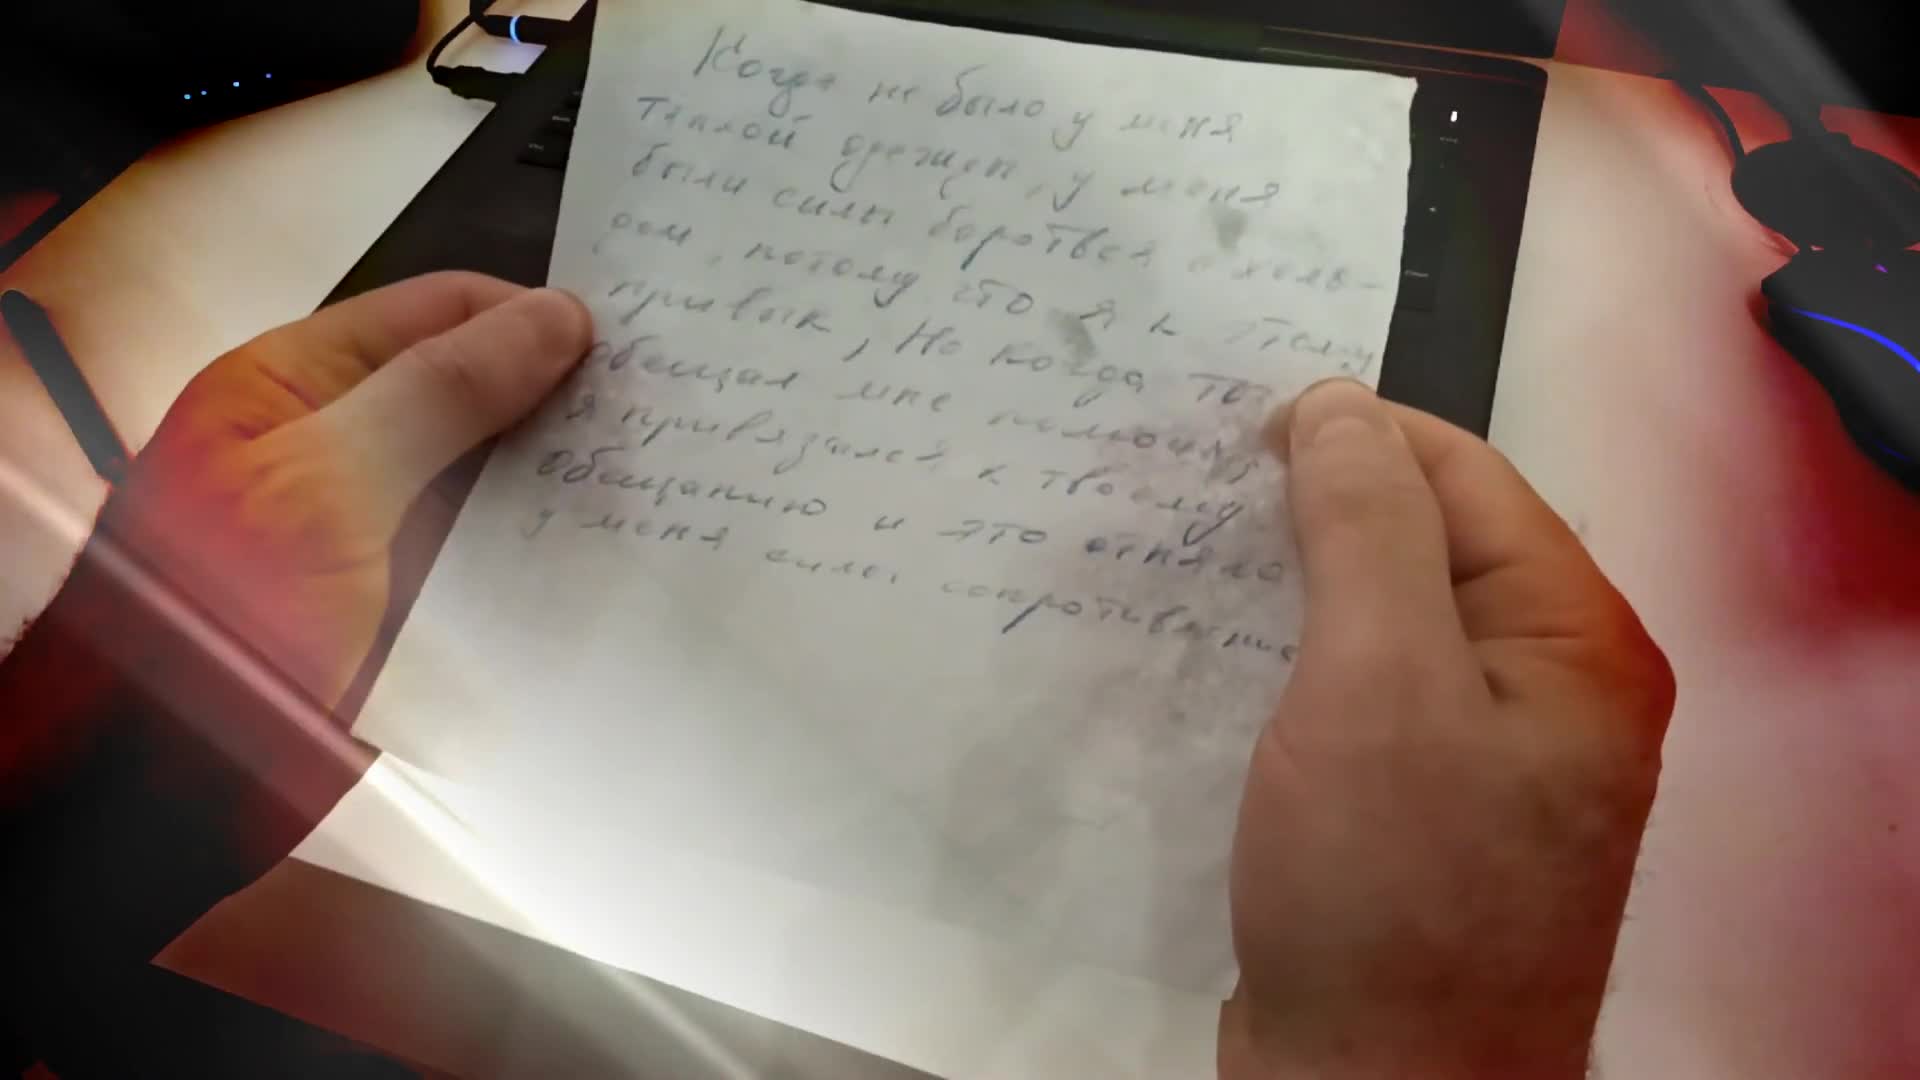 Когда не было у меня
теплой одежды, у меня
были силы бороться с холо-
дом, потому что я к этому
привык, Но когда ты
обещал мне помочь,
я привязался к твоему
обещанию и это отняло
у меня силы сопротивления